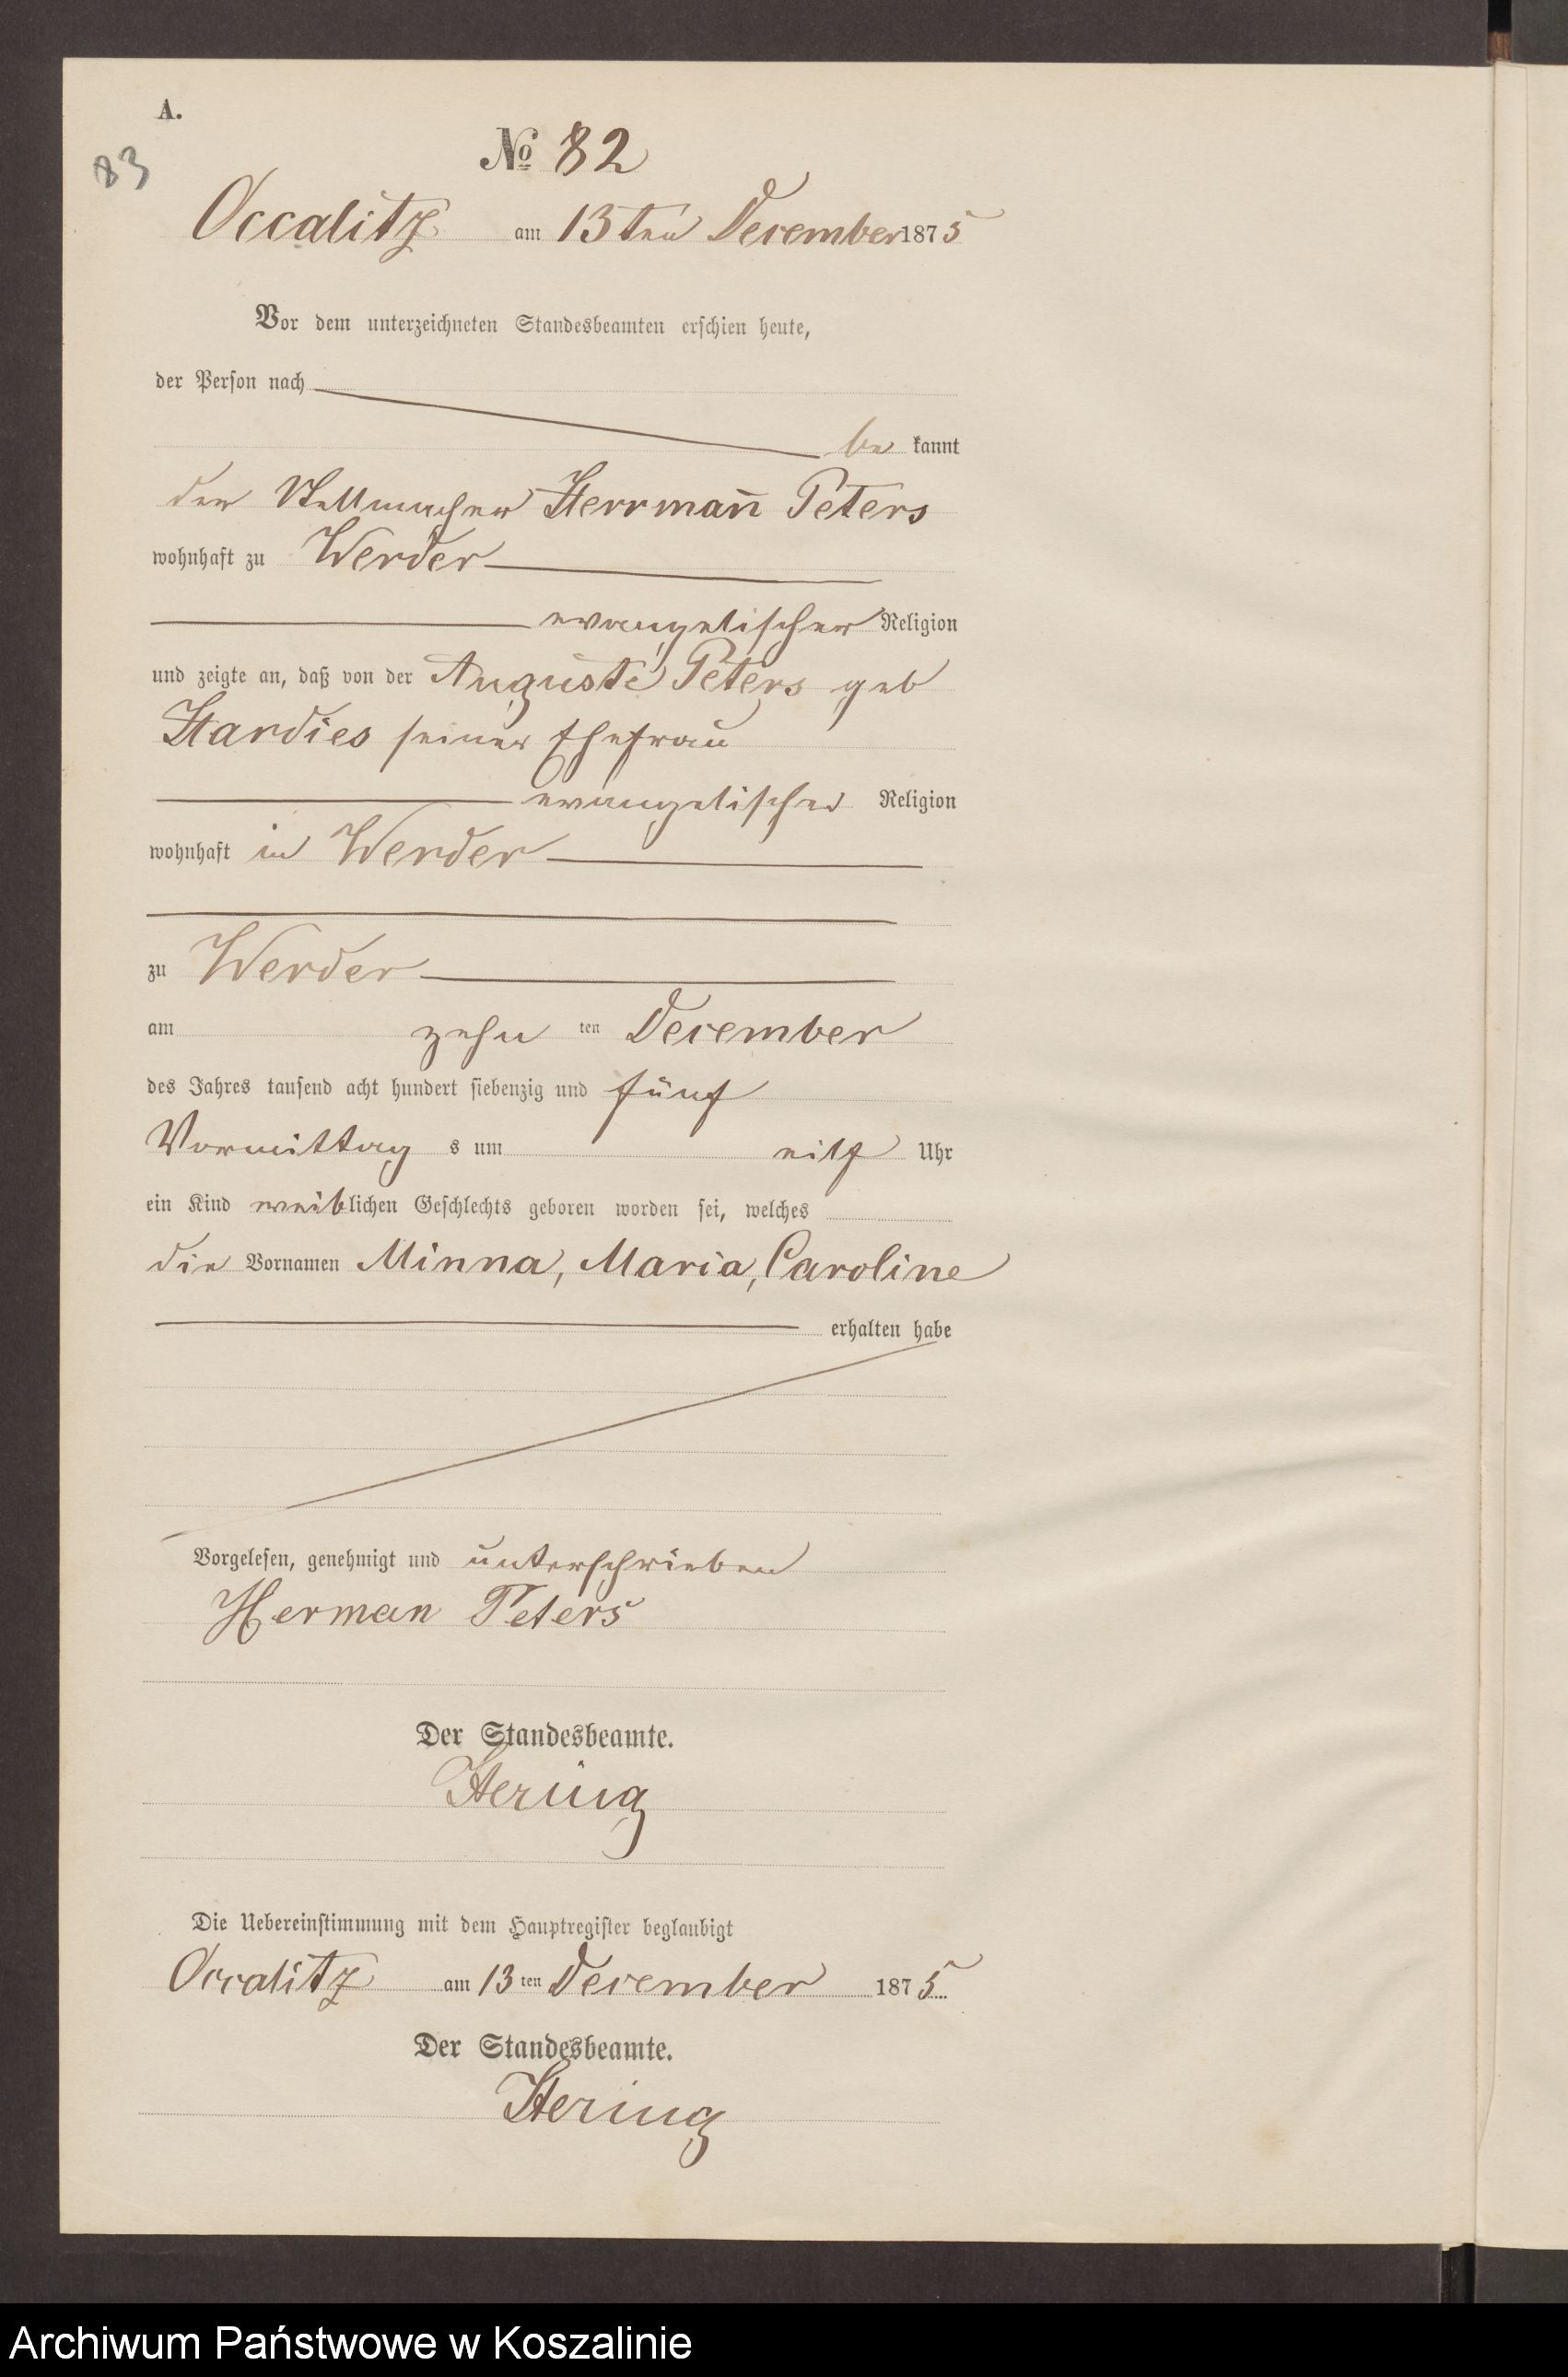 A.
83
No 82
Occalitz am 13ten December 1875
Vor dem unterzeichneten Standesbeamten erschien heute,
der Person nach
be kannt
der Stellmacher Herrman̄ Peters
wohnhaft zu Werder
evangelischer Religion
und zeigte an, daß von der Auguste Peters geb
Hardies seiner Ehefrau
evangelischer Religion
wohnhaft in Werder
zu Werder
am zehn ten December
des Jahres tausend acht hundert siebenzig und fünf
Vormittag s um eilf Uhr
ein Kind weiblichen Geschlechts geboren worden sei, welches
die Vornamen Minna, Maria, Caroline
erhalten habe
Vorgelesen, genehmigt und unterschrieben
Herman Peters
Der Standesbeamte.
Hering
Die Uebereinstimmung mit dem Hauptregister beglaubigt
Occalitz am 13 ten December 1875
Der Standesbeamte.
Hering
Archiwum Państwowe w Koszalinie